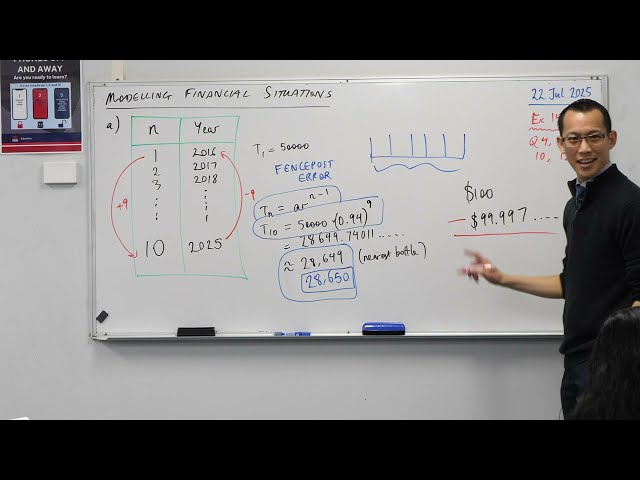 AND AWAY
Are you ready to learn?
MODELLING FINANCIAL SITUATIONS
22 Jul 2025
a)
n Year
1 2016
2 2017
3 2018
10 2025
+9
-9
T₁ = 50000
FENCEPOST
ERROR
Tₙ = arⁿ⁻¹
T₁₀ = 50000(0.94)⁹
= 28649.74011.....
≈ 28,649 (nearest bottle)
28,650
Q4,
10,
$100
- $99.997....